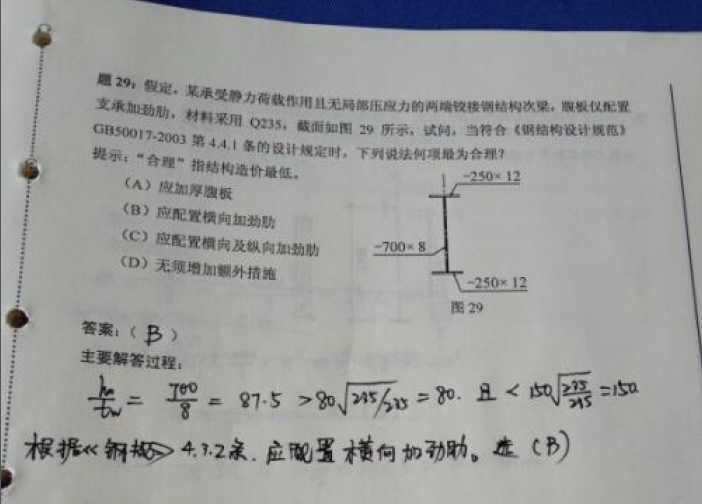 题29：假定，某承受静力荷载作用且无局部压应力的两端铰接钢结构次梁，腹板仅配置
支承加劲肋，材料采用 Q235，截面如图 29 所示，试问，当符合《钢结构设计规范》
GB50017-2003 第 4.4.1 条的设计规定时，下列说法何项最为合理？
提示：“合理”指结构造价最低。
（A）应加厚腹板
（B）应配置横向加劲肋
（C）应配置横向及纵向加劲肋
（D）无须增加额外措施
-250×12
-700×8
-250×12
图 29
答案：（ B ）
主要解答过程：
h₀/tw = 700/8 = 87.5 > 80√235/235 = 80. 且 < 150√235/235 = 150
根据《钢规》4.3.2条. 应配置横向加劲肋。选（B）